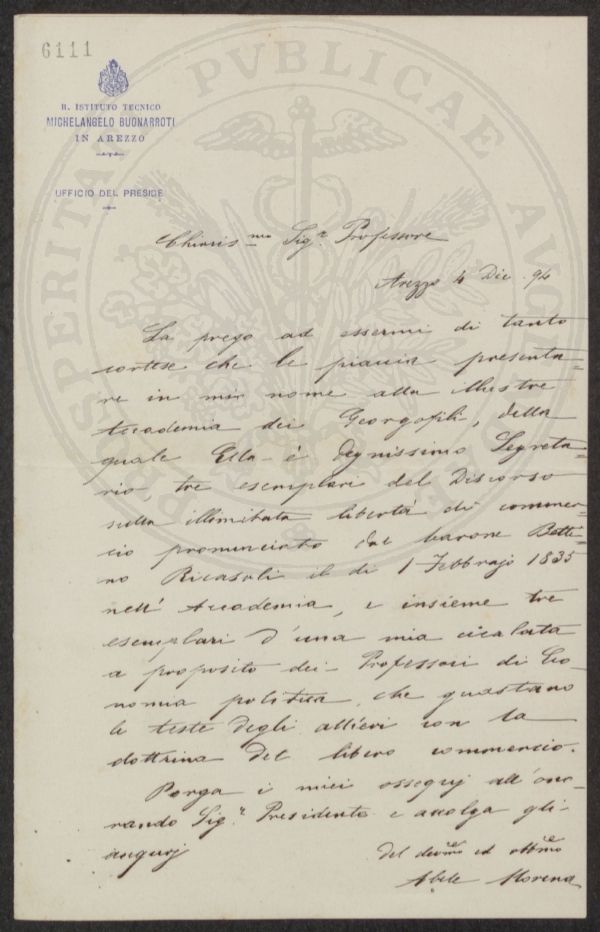 6111
R. ISTITUTO TECNICO
MICHELANGELO BUONARROTI
IN AREZZO
UFFICIO DEL PRESIDE
PROSPERITATI PVBLICAE AVGENDAE
Chiaris.mo Sig.r Professore
Arezzo 4 Dic. 94
La prego ad essermi di tanto
cortese che le piaccia presenta=
re in mio nome alla illustre
Accademia dei Georgofili, della
quale Ella è degnissimo Segreta=
rio tre esemplari del Discorso
sulla illimitata libertà di commer=
cio pronunciato dal barone Betti=
no Ricasoli il dì 1 Febbrajo 1835
nell' Accademia, e insieme tre
esemplari d'una mia cicalata
a proposito dei Professori di Eco
nomia politica, che guastano
le teste degli allievi con la
dottrina del libero commercio.
Porga i miei ossequj all'ono=
rando Sig.r Presidente e accolga gli
augurj
del dev.mo ed obb.mo
Abele Morena